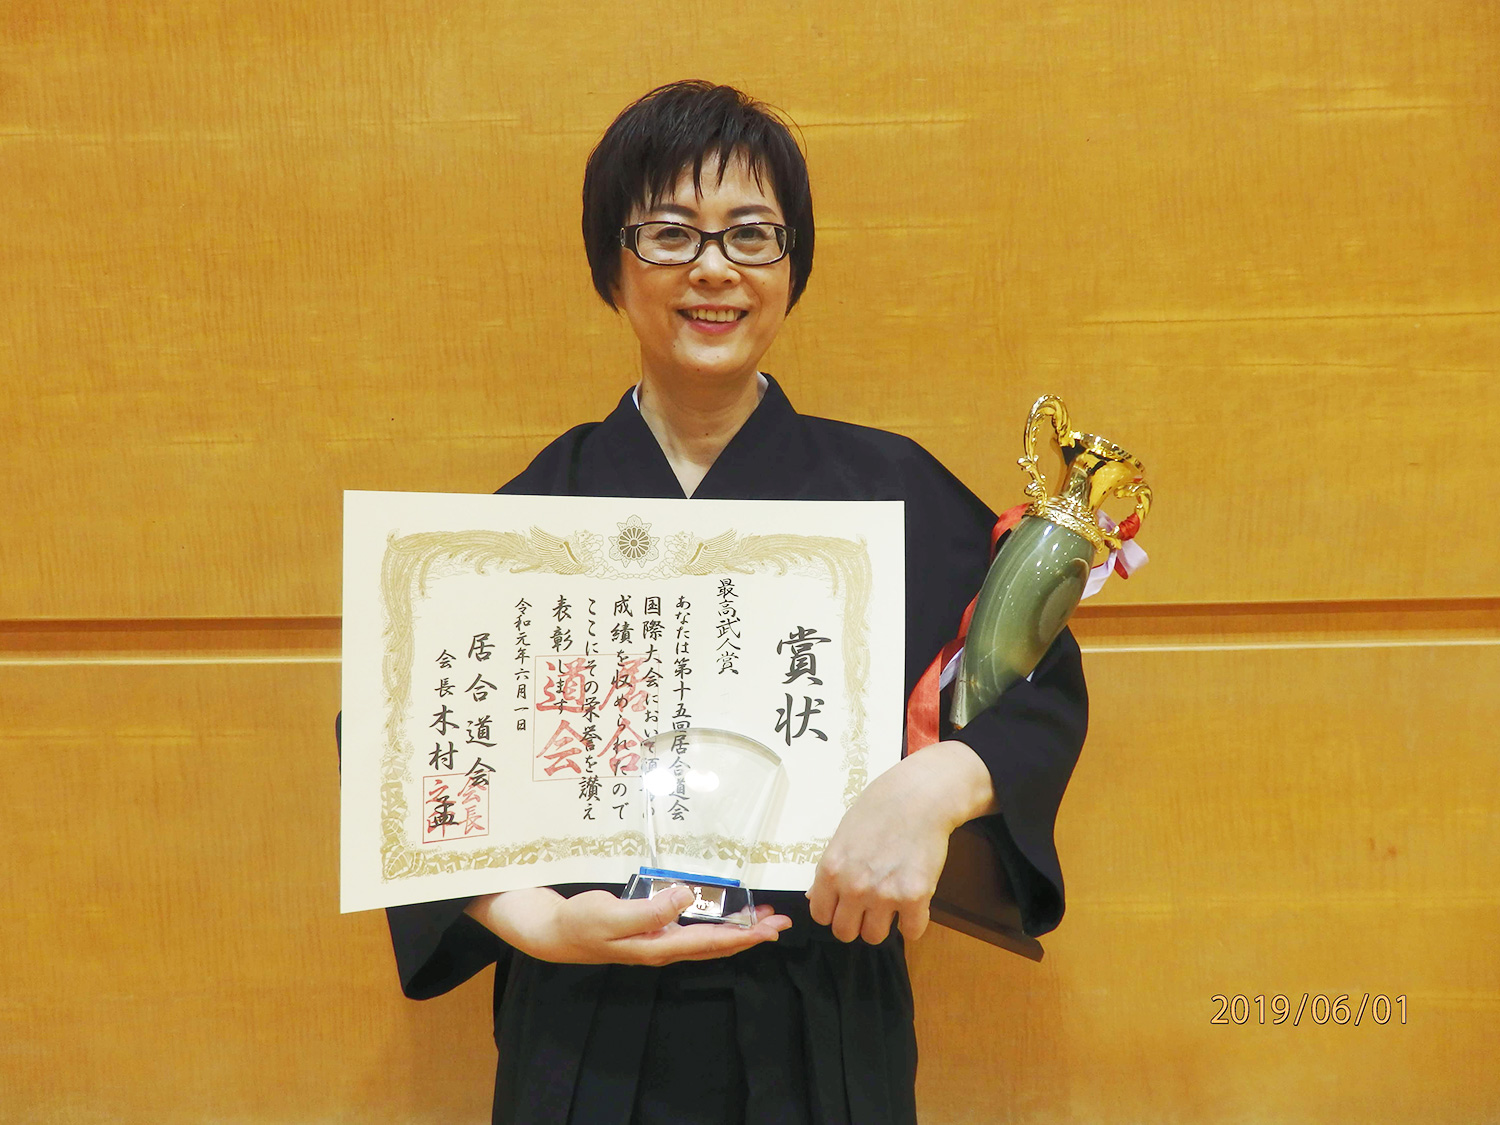 賞状
最高武人賞
あなたは第十五回居合道会
国際大会において
成績を収められたので
ここにその栄誉を讃え
表彰します
令和元年六月一日
居合道会
会長 木村
居合
道会
会長
之印
2019/06/01